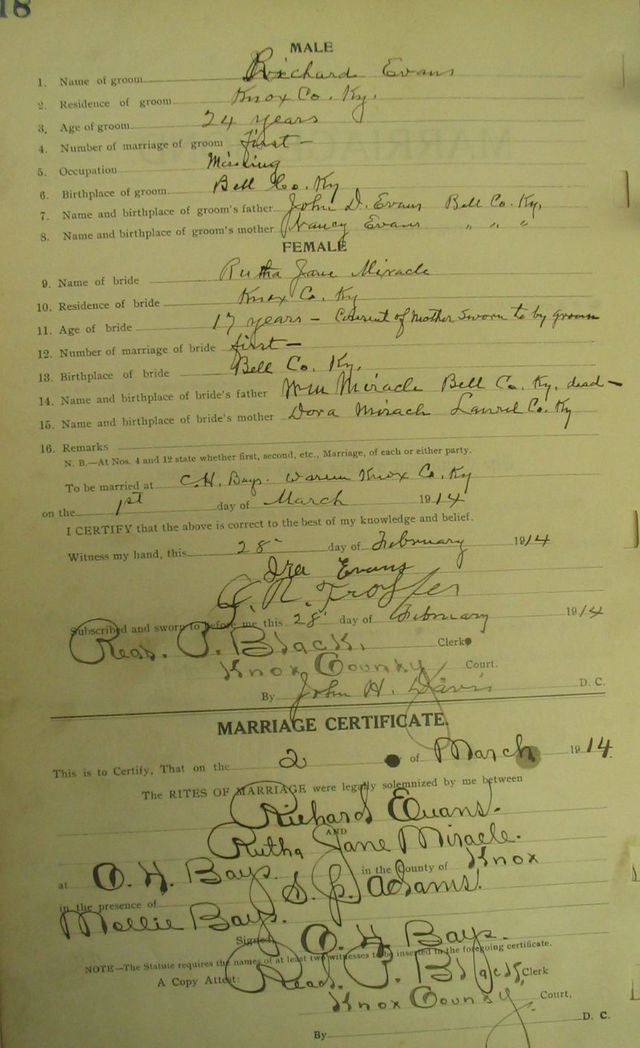 18
MALE
1. Name of groom Richard Evans
2. Residence of groom Knox Co. Ky.
3. Age of groom 24 years
4. Number of marriage of groom first —
5. Occupation Mining
6. Birthplace of groom Bell Co. Ky
7. Name and birthplace of groom's father John D. Evans Bell Co. Ky.
8. Name and birthplace of groom's mother Nancy Evans " " "
FEMALE
9. Name of bride Rutha Jane Miracle
10. Residence of bride Knox Co. Ky
11. Age of bride 17 years — Consent of Mother Sworn to by groom
12. Number of marriage of bride first —
13. Birthplace of bride Bell Co. Ky.
14. Name and birthplace of bride's father Wm Miracle Bell Co. Ky. dead —
15. Name and birthplace of bride's mother Dora Mirach Laurel Co. Ky
16. Remarks
N. B.—At Nos. 4 and 12 state whether first, second, etc., Marriage, of each or either party.
To be married at C. H. Bays. Warren Knox Co. Ky
on the 1st day of March 1914
I CERTIFY that the above is correct to the best of my knowledge and belief.
Witness my hand, this 28 day of February 1914
Ira Evans
Subscribed and sworn to before me this 28 day of February 1914
Read P. Black, Clerk
Knox County Court.
By John H. Davis D. C.
MARRIAGE CERTIFICATE.
This is to Certify, That on the 2 of March 1914.
The RITES OF MARRIAGE were legally solemnized by me between
Richard Evans.
AND
Rutha Jane Miracle.
at C. H. Bays. in the County of Knox
in the presence of S. J. Adams.
Mollie Bays.
Signed C. H. Bays.
NOTE—The Statute requires the names of at least two witnesses to be inserted in the foregoing certificate.
A Copy Attest: Read P. Black, Clerk
Knox County, Court,
By D. C.